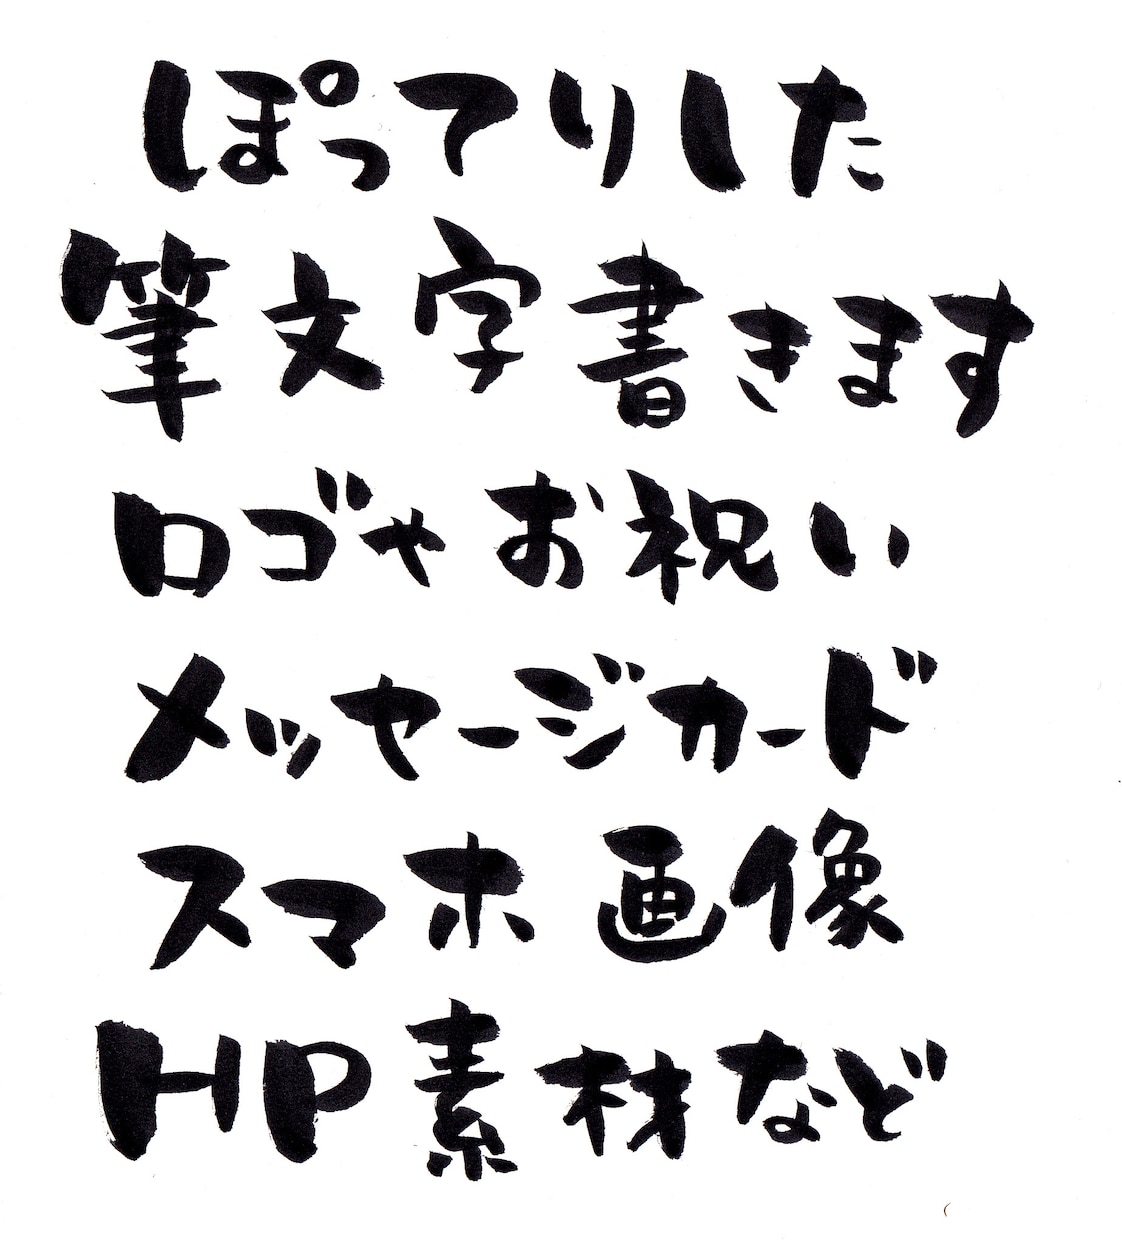 ぽってりした
筆文字書きます
ロゴやお祝い
メッセージカード
スマホ画像
HP素材など